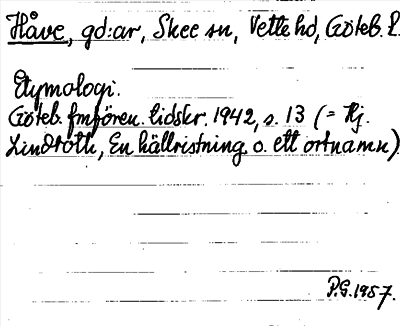 Håve, gd:ar, Skee sn, Vette hd, Göteb. l.
Etymologi.
Göteb. fmfören. tidskr. 1942, s. 13 (= Hj.
Lindroth, En hällristning o. ett ortnamn)
P.G. 1957.